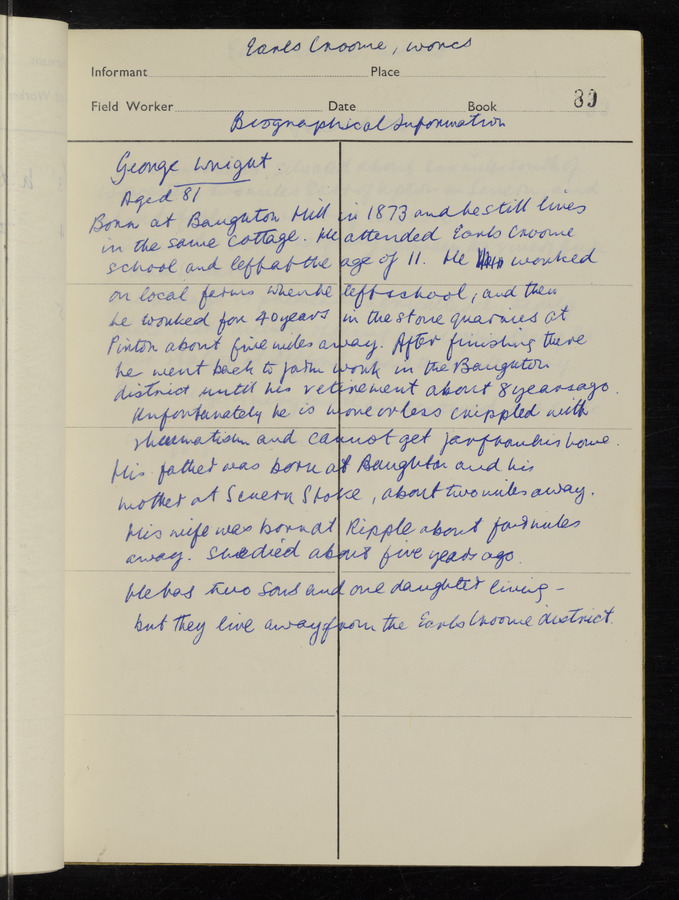 Earls Croome, Worcs
Informant Place
Field Worker Date Book 80
Biographical Information
George Wright.
Aged 81
Born at Baughton Hill in 1873 and he still lives
in the same cottage. He attended Earls Croome
school and left at the age of 11. He worked
on local farms when he left school, and then
he worked for 40 years in the stone quarries at
Pirton about five miles away. After finishing there
he went back to farm work in the Baughton
district until his retirement about 8 years ago.
Unfortunately he is more or less crippled with
rheumatism and cannot get far from his home.
His father was born at Baughton and his
mother at Severn Stoke, about two miles away.
His wife was born at Ripple about four miles
away. She died about five years ago.
He has two sons and one daughter living –
but they live away from the Earls Croome district.